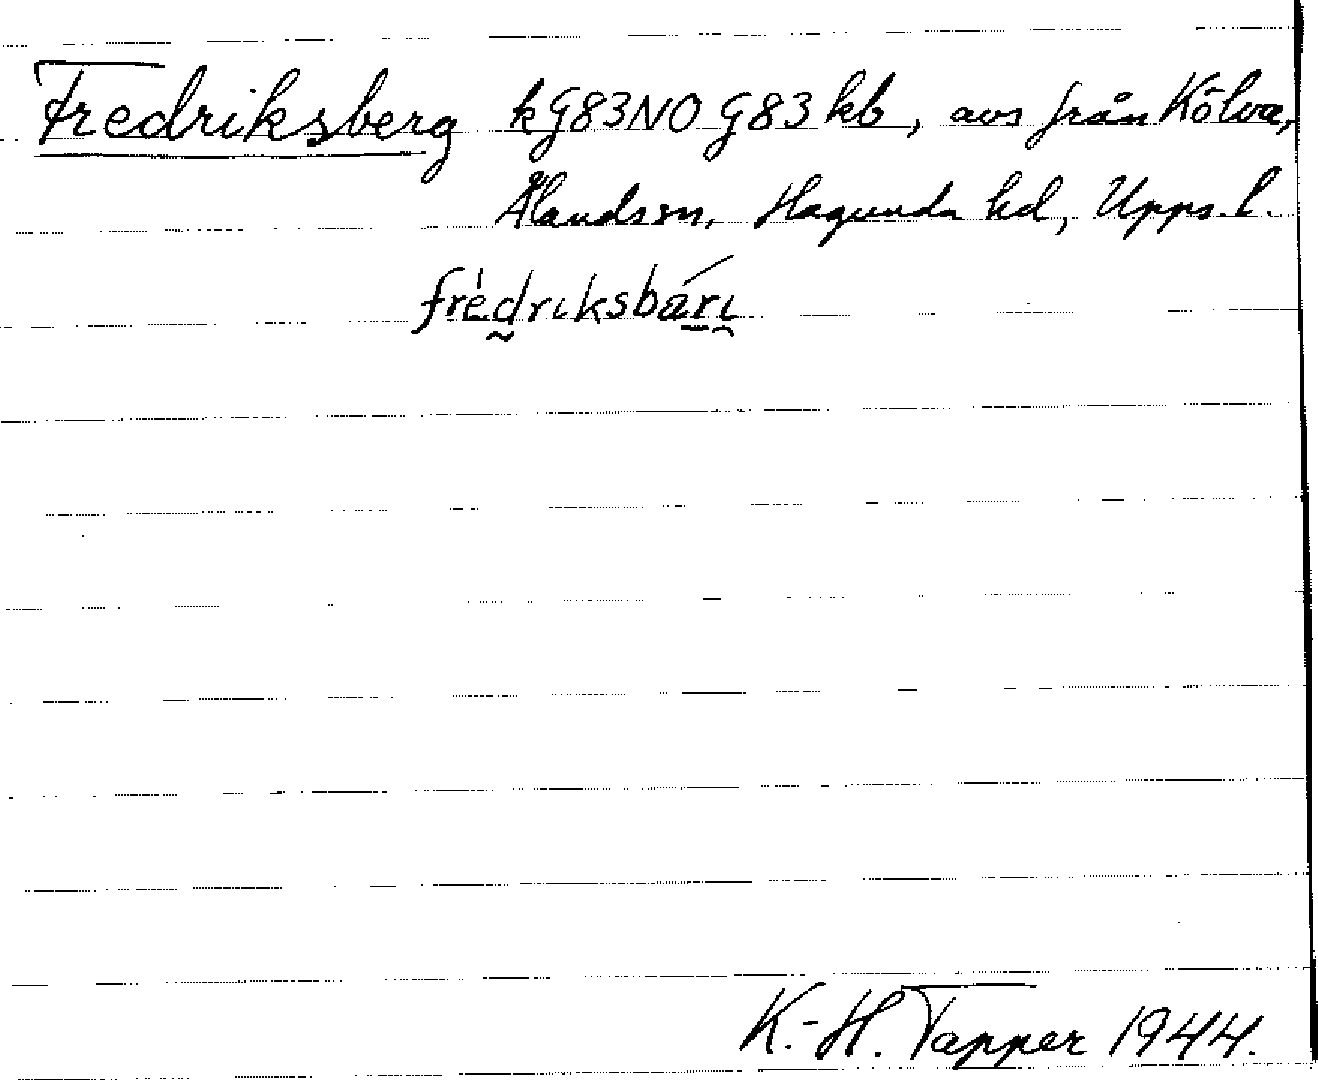 Fredriksberg kG83NO G83 kb, avs från Kölva,
Ålands sn, Hagunda hd, Upps. l.
frèdriksbárı
K.-H. Tapper 1944.